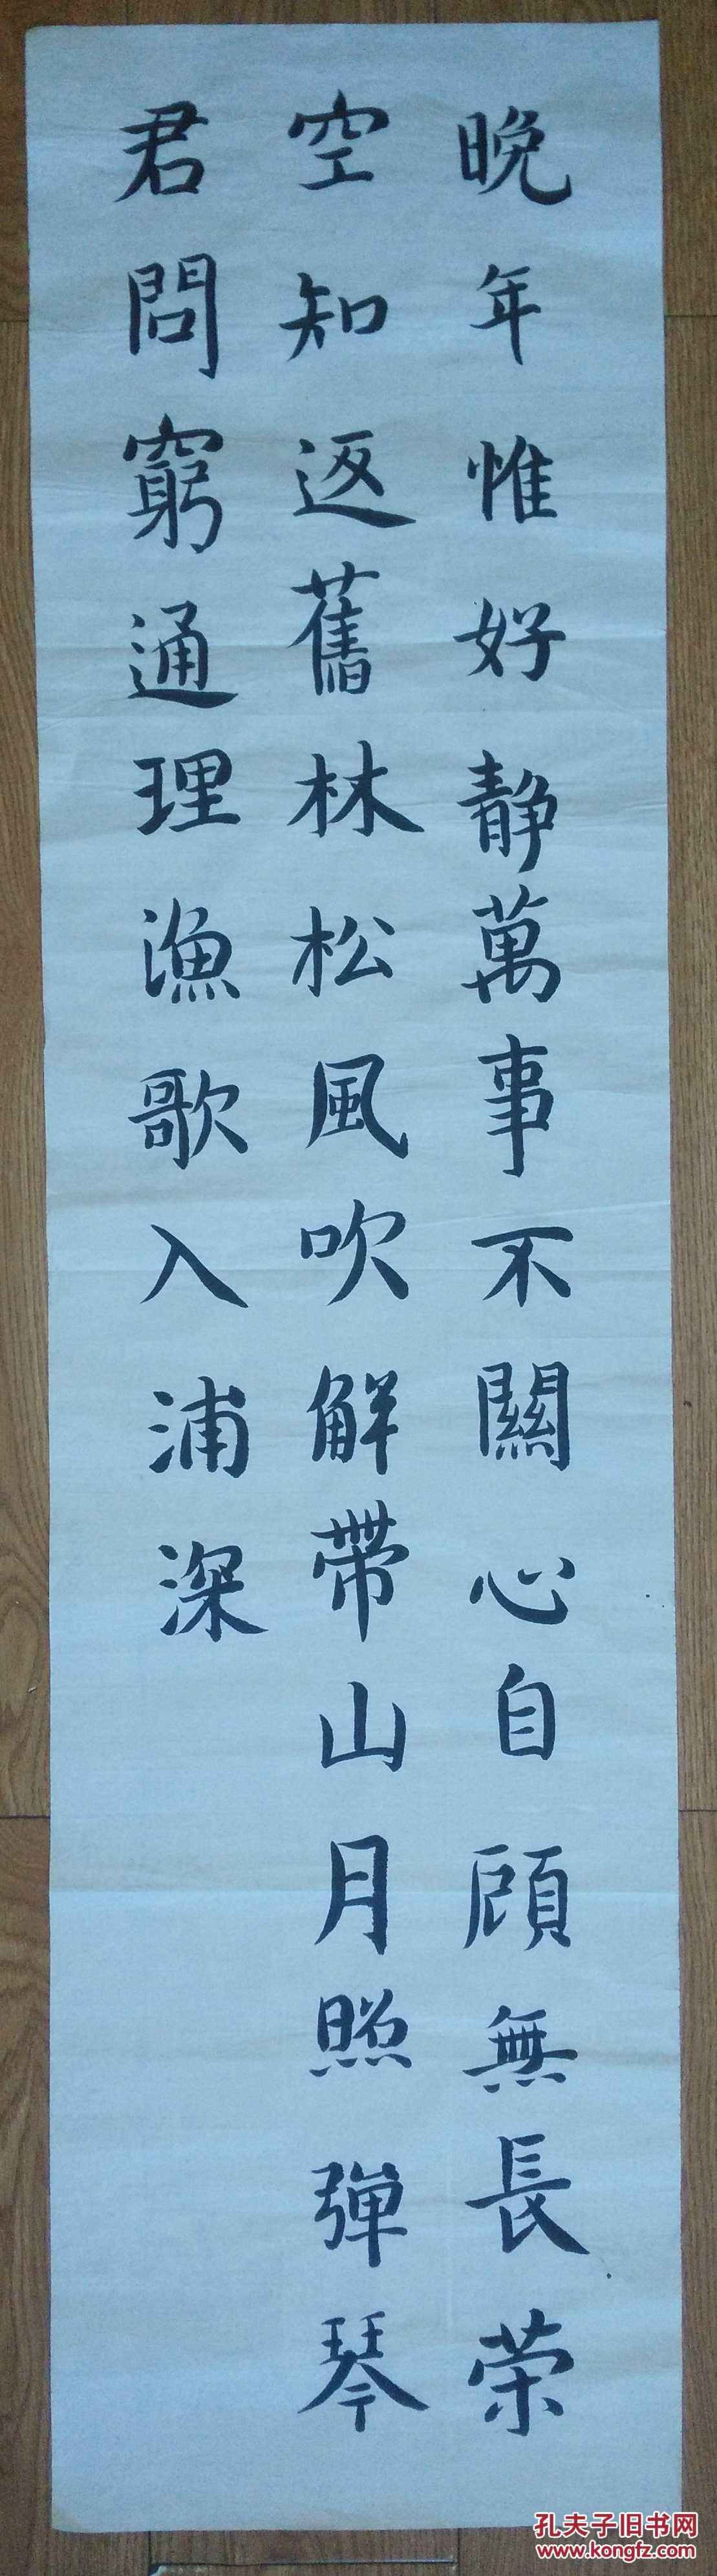 晚年惟好静萬事不關心自顾無長荣
空知返舊林松風吹解帶山月照弹琴
君問窮通理漁歌入浦深
孔夫子旧书网
www.kongfz.com